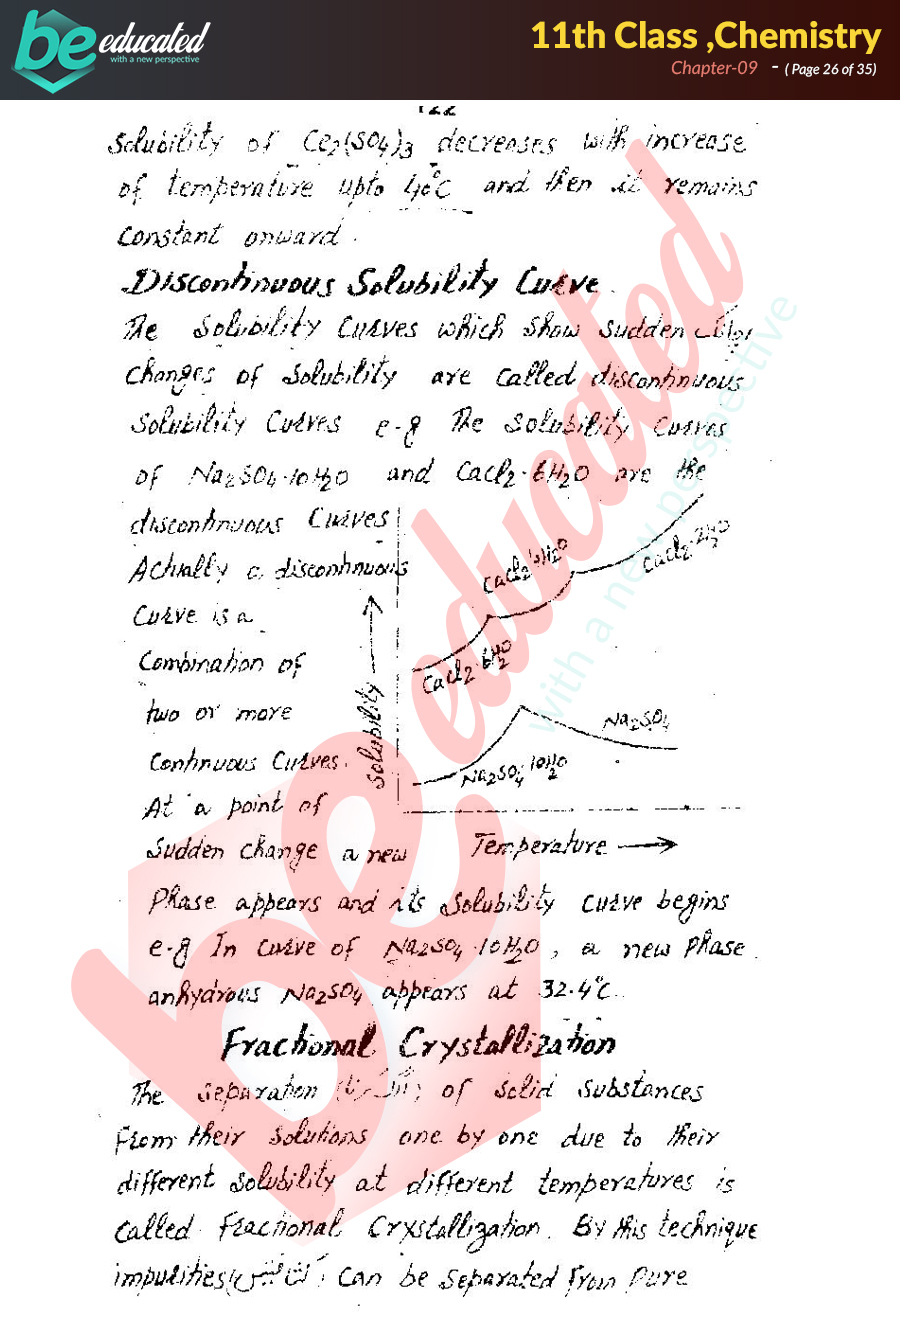 be educated
with a new perspective
11th Class ,Chemistry
Chapter-09 - ( Page 26 of 35)
122
Solubility of Ce2(SO4)3 decreases with increase
of temperature upto 40°C and then it remains
Constant onward.
Discontinuous Solubility Curve.
The Solubility Curves which show sudden
changes of solubility are called discontinuous
solubility Curves e-g The Solubility Curves
of Na2SO4.10H2O and CaCl2.6H2O are the
discontinuous Curves
Actually a discontinuous
Curve is a
Combination of
two or more
Continuous Curves.
At a point of
Sudden change a new
Solubility
CaCl2.4H2O
CaCl2.2H2O
CaCl2.6H2O
Na2SO4
Na2SO4.10H2O
Temperature
Phase appears and its Solubility curve begins
e-g In curve of Na2SO4.10H2O, a new phase
anhydrous Na2SO4 appears at 32.4°C.
Fractional Crystallization
The separation of solid substances
From their solutions one by one due to their
different solubility at different temperatures is
called Fractional Crystallization. By this technique
impurities can be separated from pure
be educated
with a new perspective